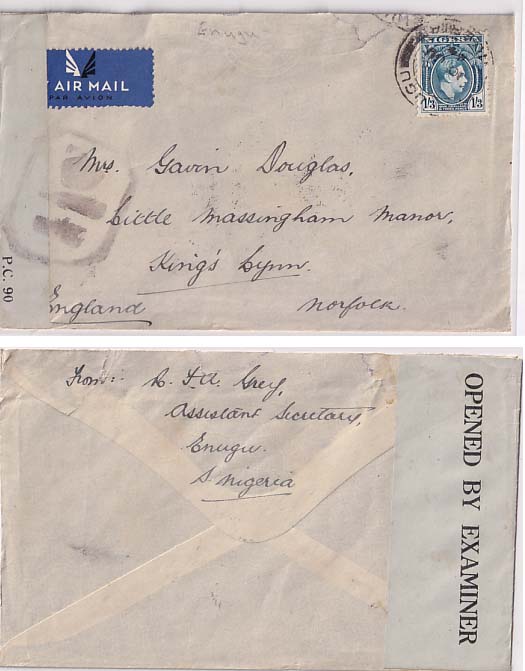 Enugu
NIGERIA
1/3 1/3
AIR MAIL
PAR AVION
Mrs. Gavin Douglas,
Little Massingham Manor,
King's Lynn.
England Norfolk.
P.C. 90
From:-
Grey,
Assistant Secretary,
Enugu.
S. Nigeria
OPENED BY EXAMINER